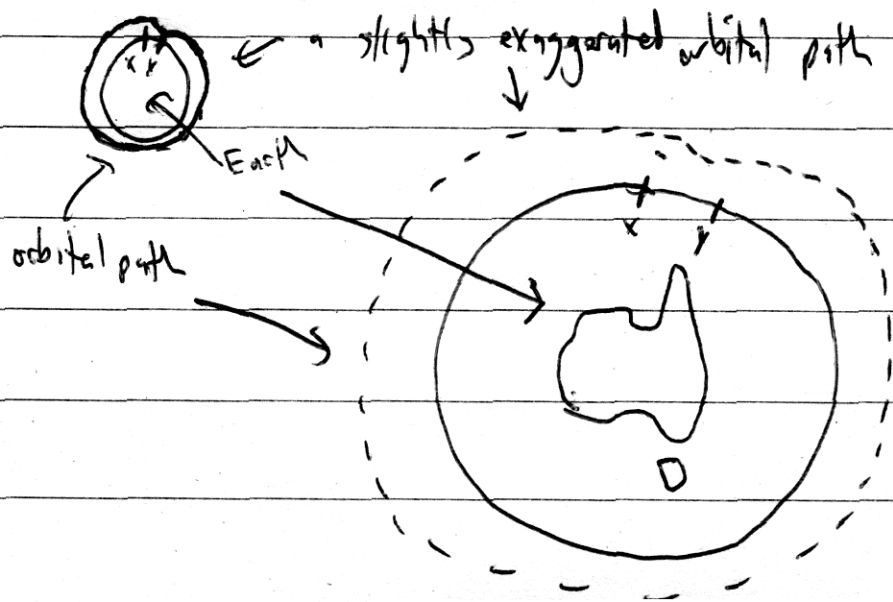 a slightly exaggerated orbital path
x y
Earth
x
y
orbital path